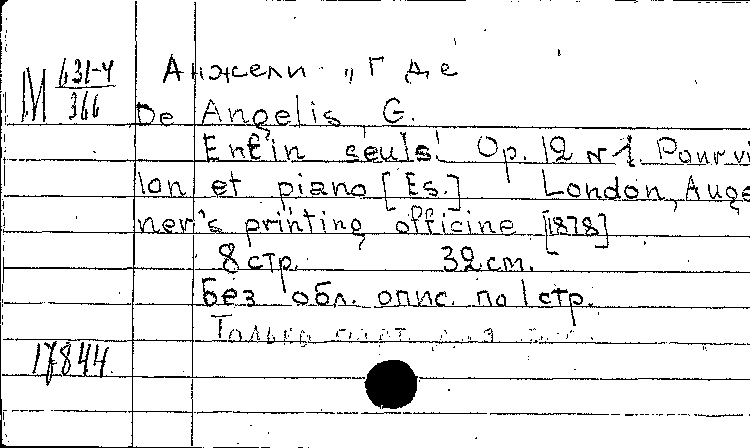 М 631-4/366
Анжели, Г де
De Angelis G.
Enfin seuls! Op. 12 N 1. Pour vi
lon et piano [Es.] London, Auge
ner's printing officine [1878]
8 стр. 32 см.
Без обл. опис. по 1 стр.
Только
17844.